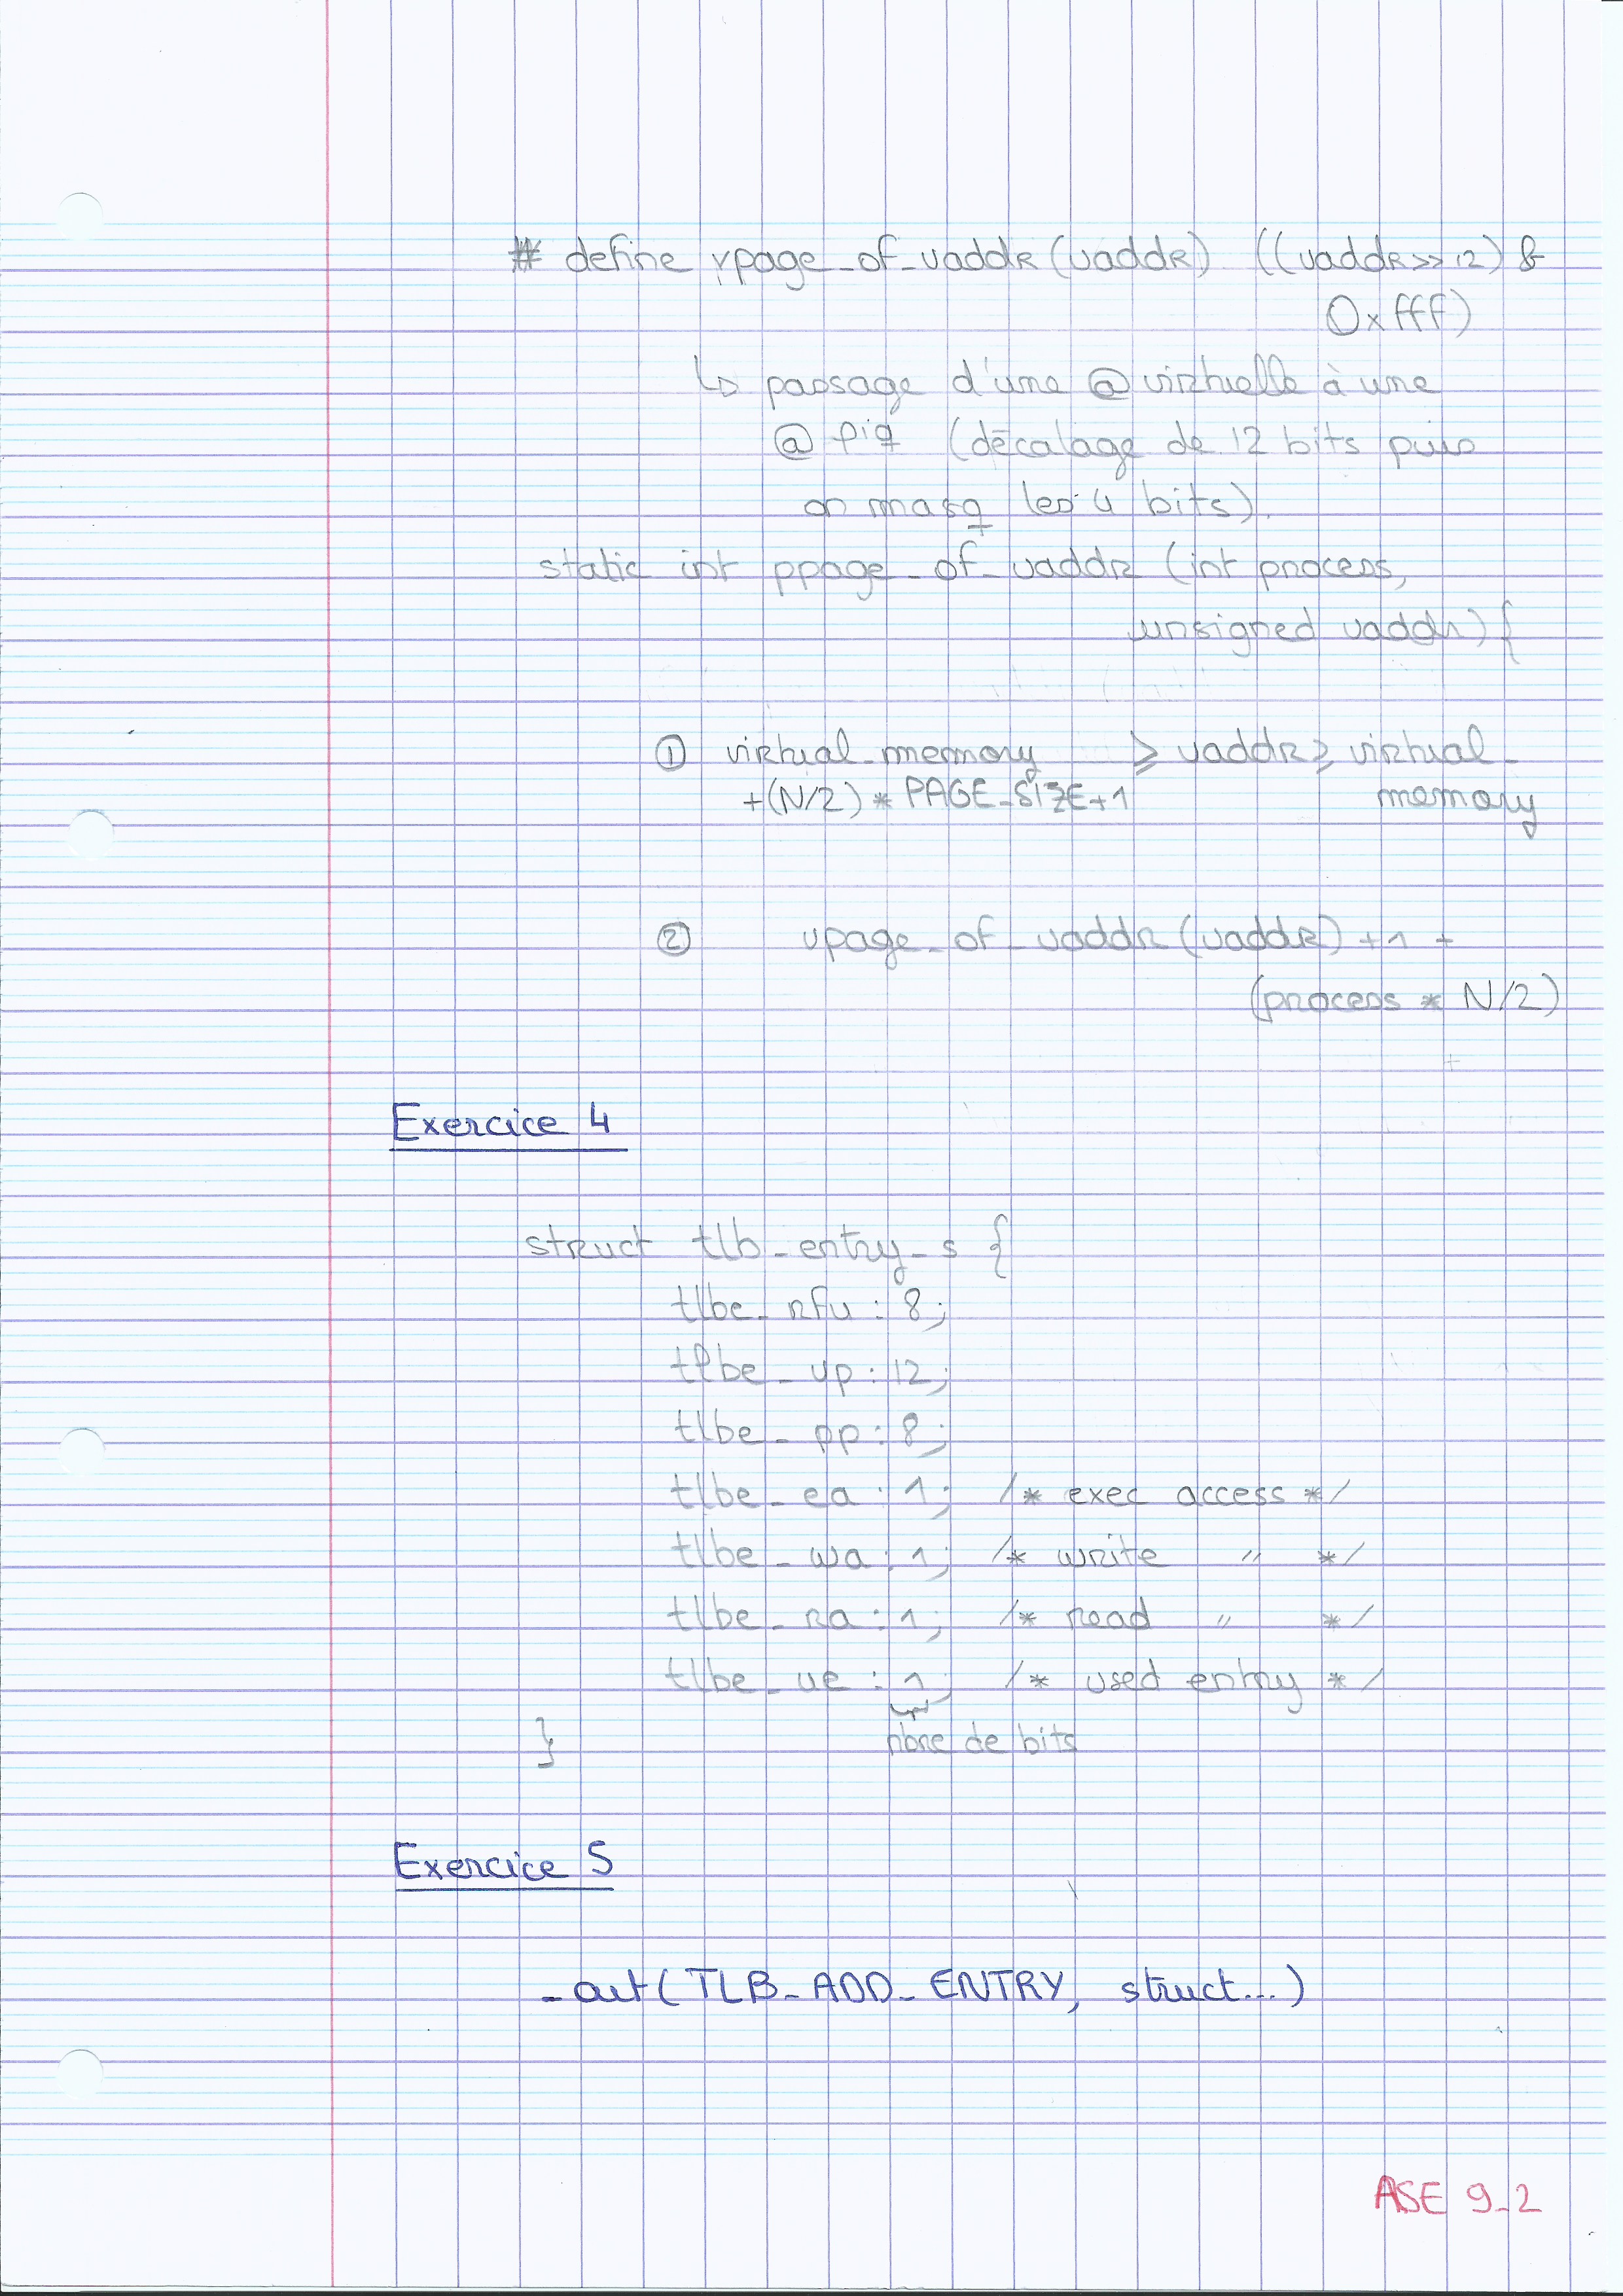 # define vpage_of_vaddr(vaddr) ((vaddr>>12) &
0xfff)
↳ passage d'une @ virtuelle à une
@ piq (décalage de 12 bits puis
on masq les 4 bits).
static int ppage_of_vaddr (int process,
unsigned vaddr) {
① virtual_memory ⩾ vaddr ⩾ virtual_
+(N/2) * PAGE_SIZE+1 memory
② vpage_of_vaddr (vaddr) +1 +
(process * N/2)
Exercice 4
struct tlb_entry_s {
tlbe_rfu : 8;
tlbe_vp : 12;
tlbe_pp : 8;
tlbe_ea : 1; /* exec access */
tlbe_wa : 1; /* write " */
tlbe_ra : 1; /* read " */
tlbe_ue : 1; /* used entry */
} nbre de bits
Exercice 5
_out(TLB_ADD_ENTRY, struct...)
ASE 9_2